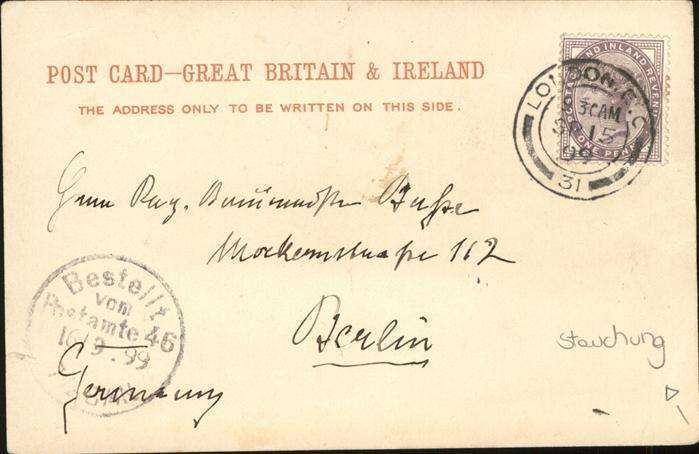 POST CARD—GREAT BRITAIN & IRELAND
THE ADDRESS ONLY TO BE WRITTEN ON THIS SIDE.
POSTAGE AND INLAND REVENUE
ONE PENNY
LONDON. E.C
3 CAM
SP 15
99
31
Herrn Reg. Baumeister Busse
Mockernstraße 112
Berlin
Germany
Bestellt
vom
Postamte 46
16/9.99
Stauchung